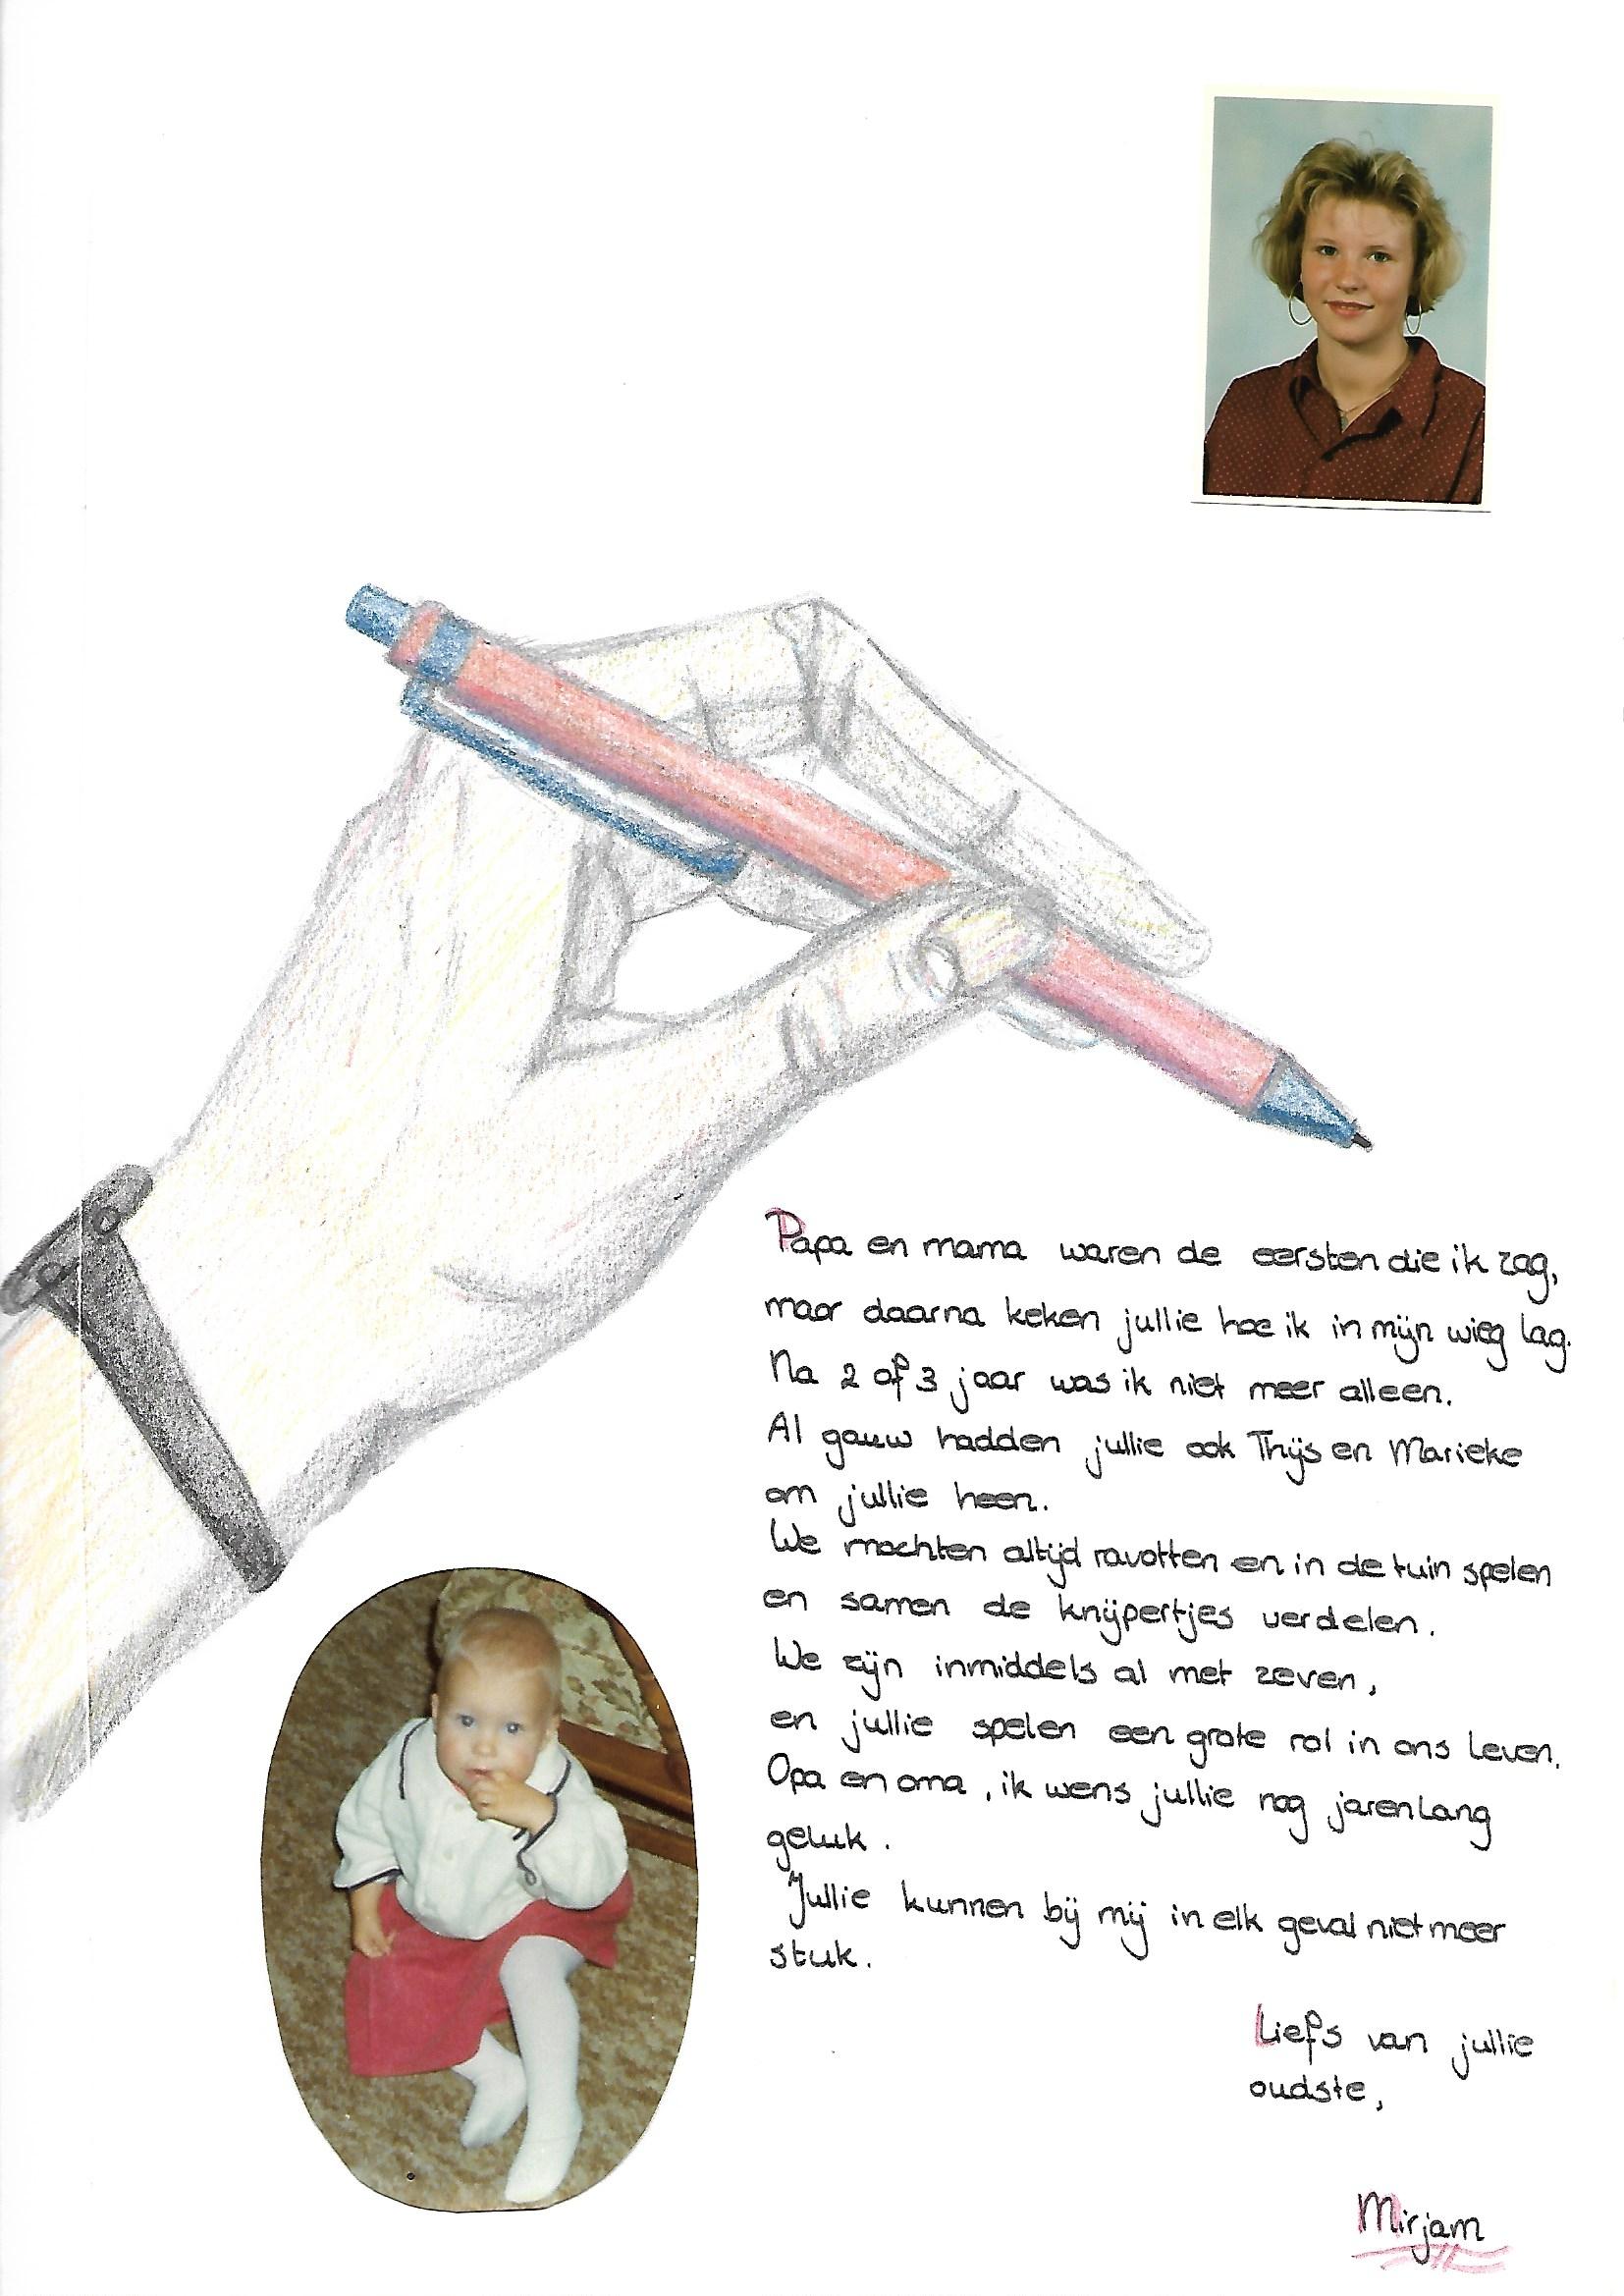 Papa en mama waren de eersten die ik zag,
maar daarna keken jullie hoe ik in mijn wieg lag.
Na 2 of 3 jaar was ik niet meer alleen.
Al gauw hadden jullie ook Thijs en Marieke
om jullie heen.
We mochten altijd ravotten en in de tuin spelen
en samen de knijpertjes verdelen.
We zijn inmiddels al met zeven,
en jullie spelen een grote rol in ons leven.
Opa en oma, ik wens jullie nog jarenlang
geluk.
Jullie kunnen bij mij in elk geval niet meer
stuk.
Liefs van jullie
oudste,
Mirjam